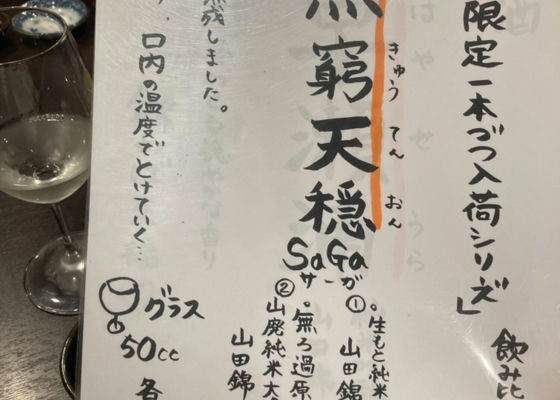 限定一本づつ入荷シリーズ」
飲み比
きゅう てん おん
窮天穏
SaGa
サーガ
①生もと純米
山田錦
②山廃純米大
無ろ過原
山田錦
熟成しました。
口内の温度でとけていく…
グラス
50cc
各